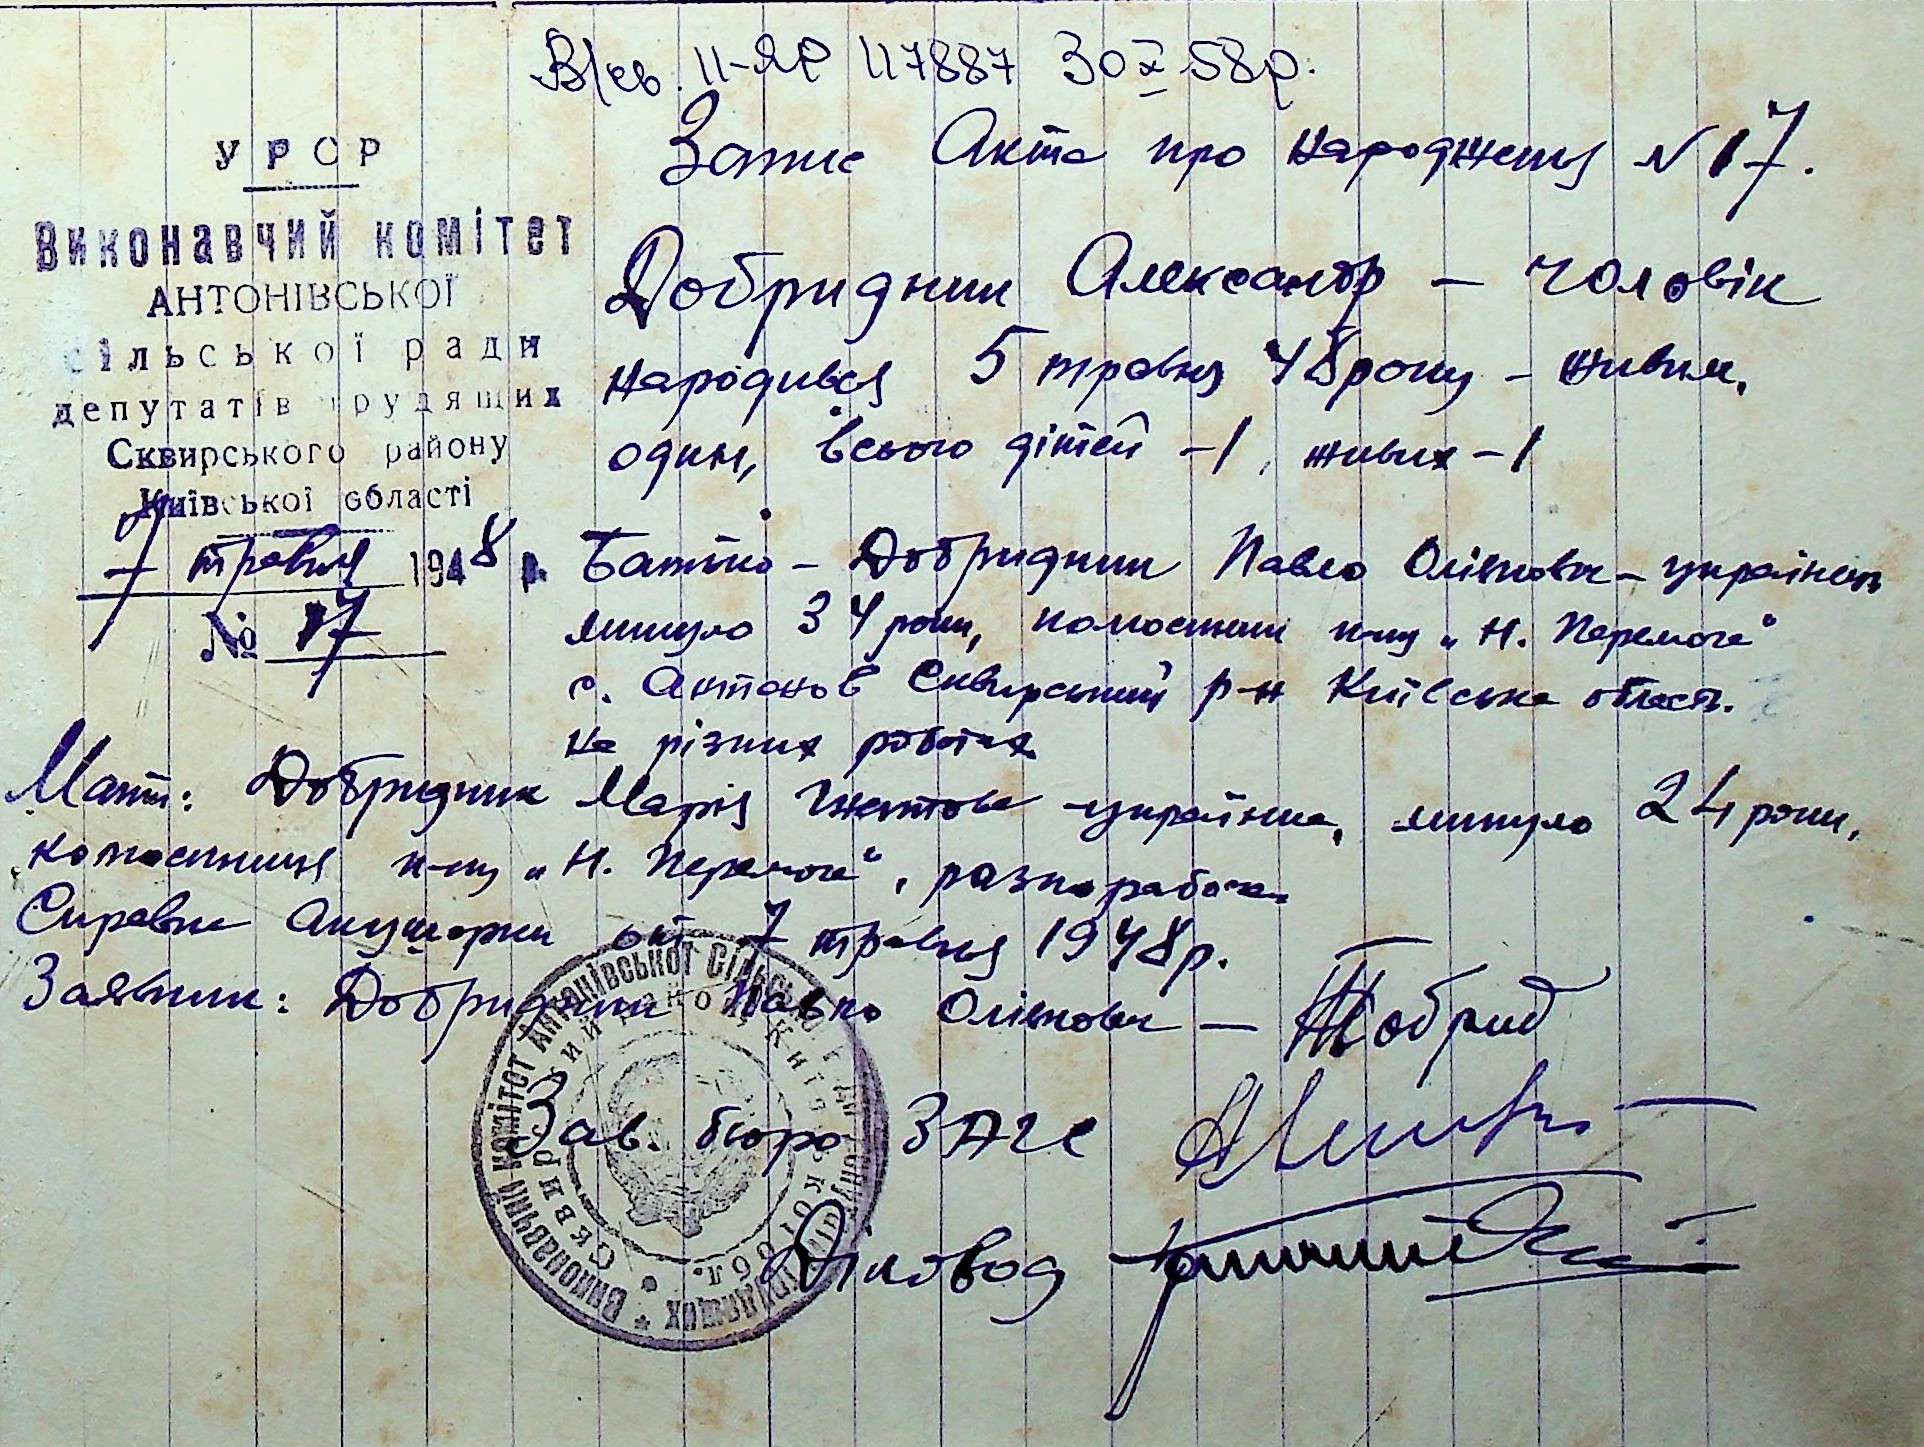 В/св. II-ЯР 117887 30 X 58 р.
Запис Акта про народження N 17.
УРСР
Виконавчий комітет
АНТОНІВСЬКОЇ
сільської ради
депутатів трудящих
Сквирського району
Київської області
7 травня 1948 р.
№ 17
Добридник Александр – чоловік
народився 5 травня 48 року – живим,
один, всього дітей – 1, живих – 1
Батько – Добридник Павло Олікович – українець
минуло 34 роки, колгоспник к-пу „Н. Перемога"
с. Антонов Сквирський р-н Київська область.
на різних роботах
Мати: Добридник Марія – українка, минуло 24 роки,
колгоспниця к-пу „Н. Перемога", разнорабоча.
Справка Акушорки от 7 травня 1948 р.
Заявник: Добридник Павло Олікович – Добрид
Зав. бюро ЗАГС
Діловод
Виконавчий комітет Антонівської сільської ради депутатів трудящих *
Сквирський район, Київської обл.